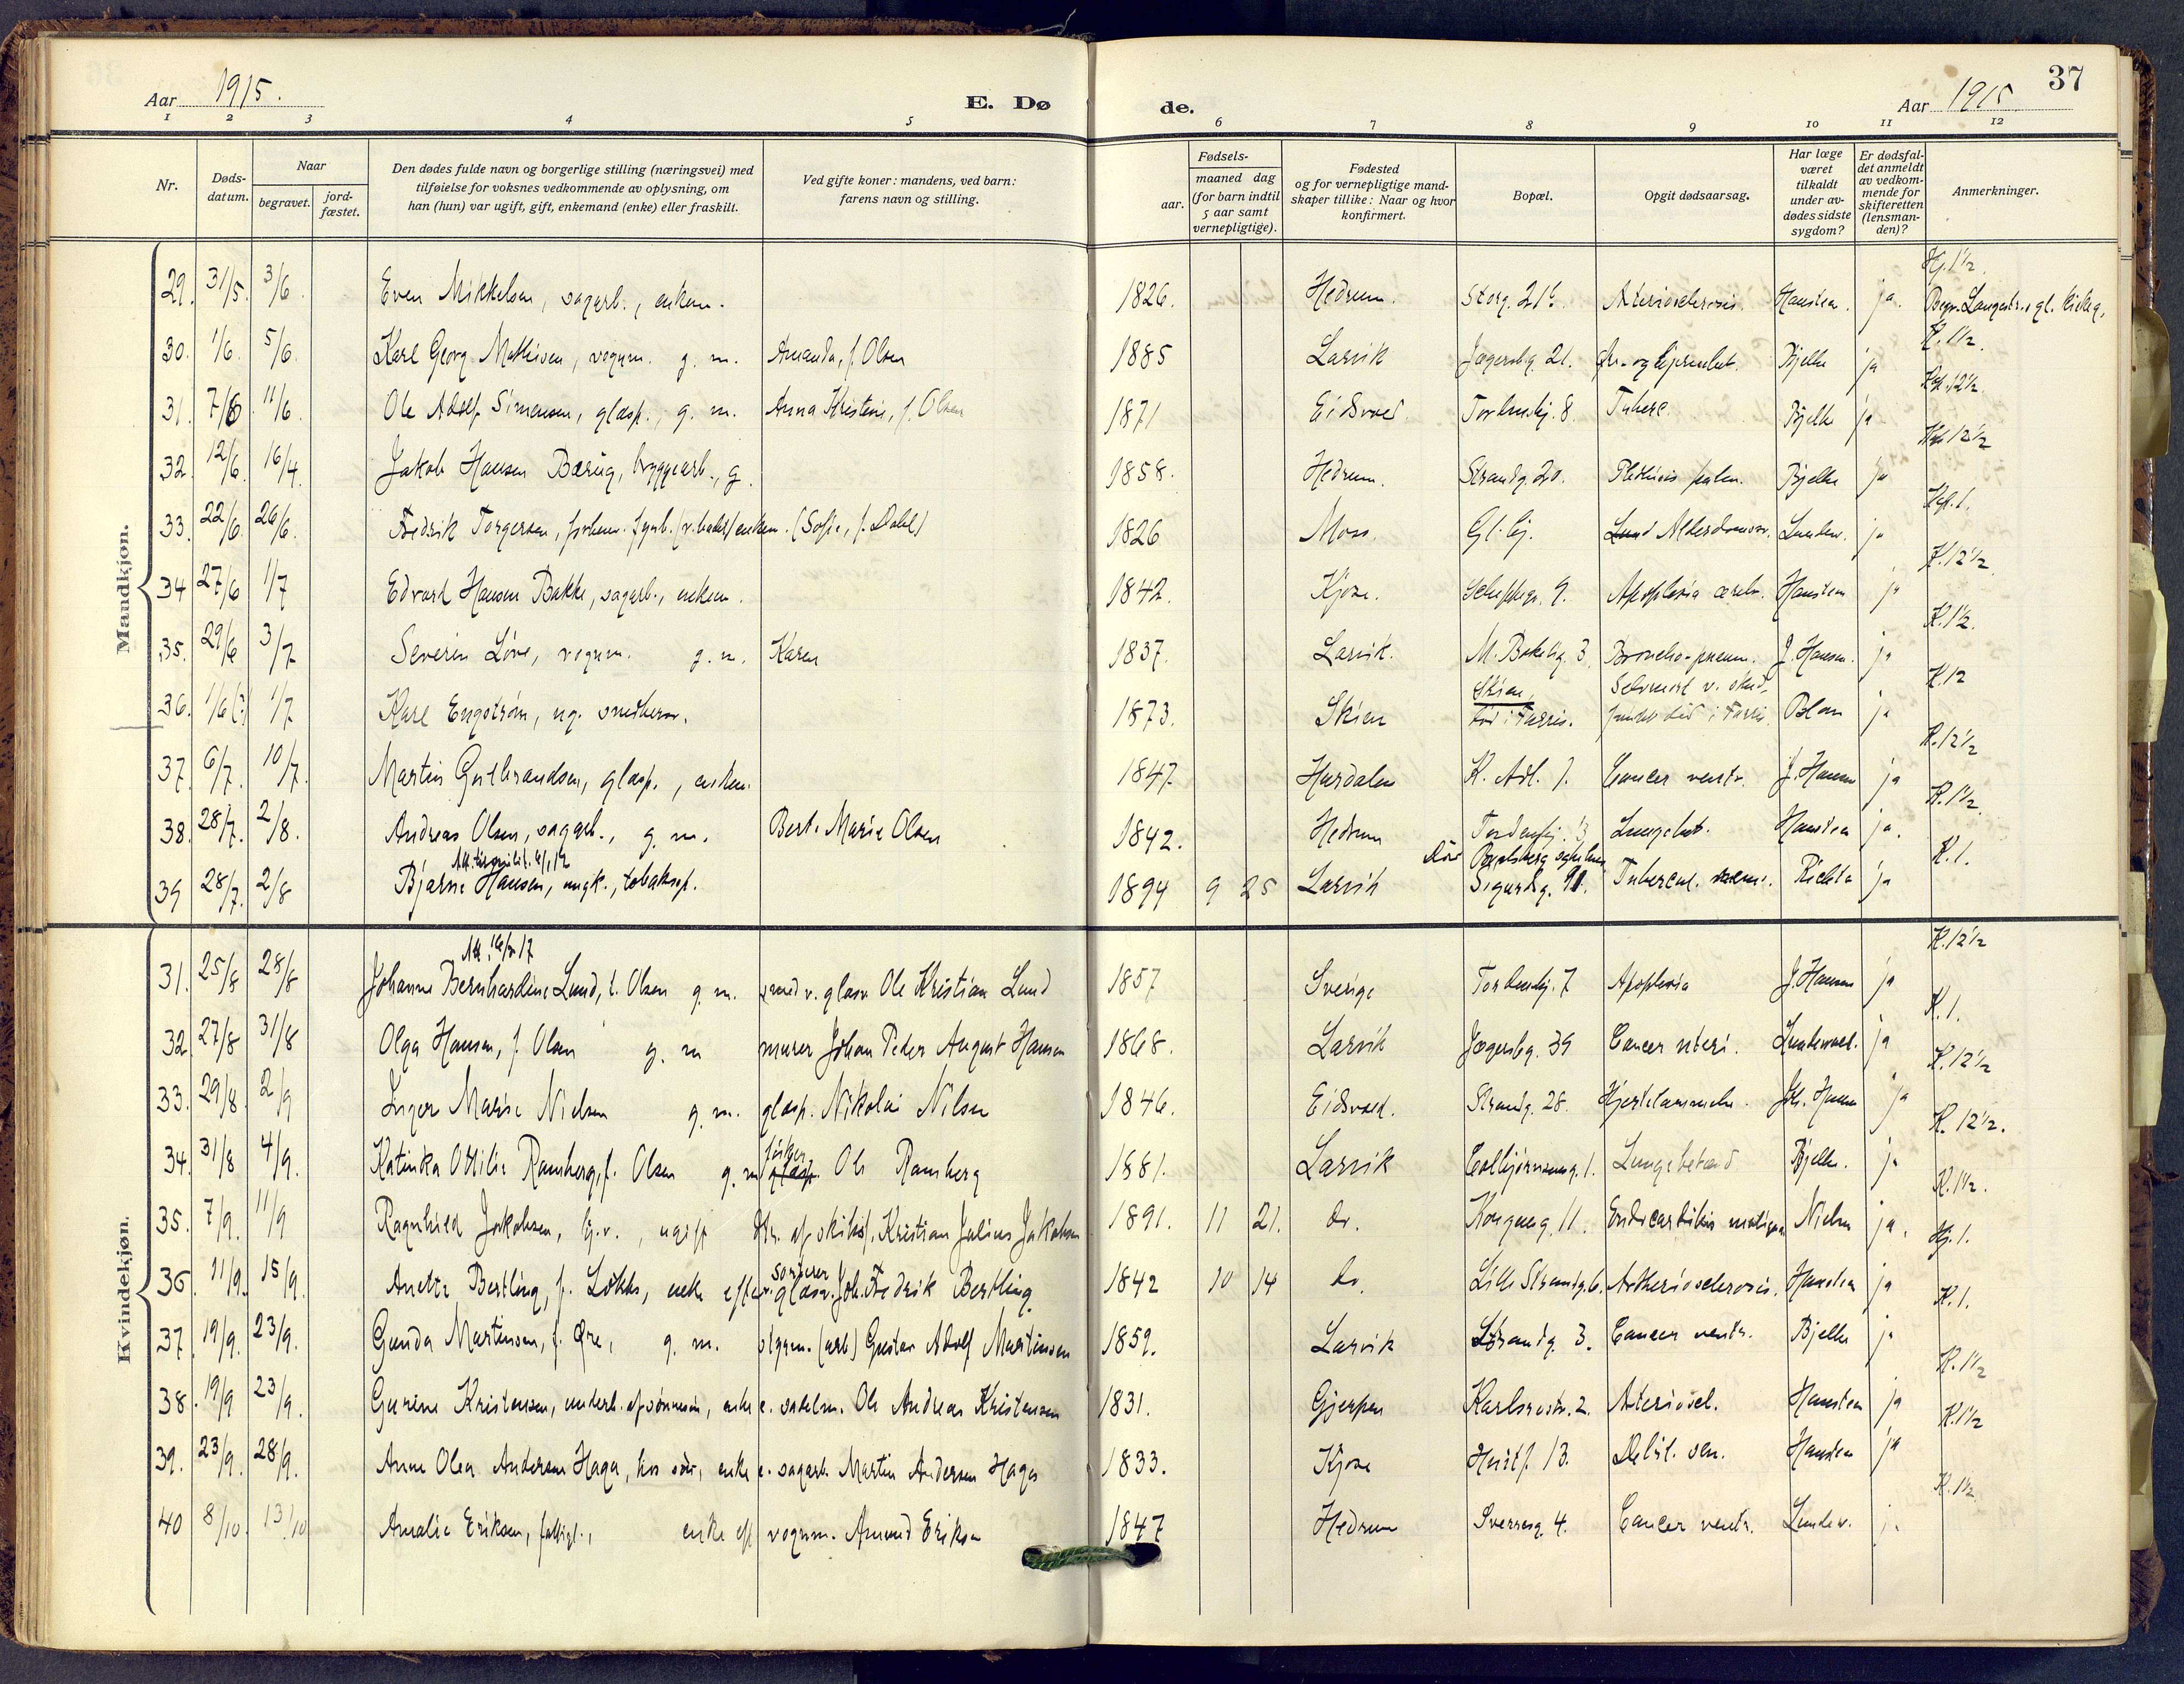 37
Aar 1915. E. Dø de. Aar 1915
1 2 3 4 5 6 7 8 9 10 11 12
Nr. Døds-datum. Naar begravet. jord-fæstet. Den dødes fulde navn og borgerlige stilling (næringsvei) med tilføielse for voksnes vedkommende av oplysning, om han (hun) var ugift, gift, enkemand (enke) eller fraskilt. Ved gifte koner: mandens, ved barn: farens navn og stilling. Fødsels- aar. maaned dag (for barn indtil 5 aar samt vernepligtige). Fødested og for vernepligtige mand-skaper tillike: Naar og hvor konfirmert. Bopæl. Opgit dødsaarsag. Har læge været tilkaldt under av-dødes sidste sygdom? Er dødsfal-det anmeldt av vedkom-mende for skifteretten (lensman-den)? Anmerkninger.
Maandkjøn.
29. 31/5 3/6. Even Mikkelsen, sagarb., enkem. 1826. Hedrum. Storg. Hansteen. ja.
30. 1/6. 5/6 Karl Georg Mathisen, vognm. g. m. Amanda, f. Olsen 1885 Larvik Jegersbg. 21. Bjelke ja K. 1½.
31. 7/6 11/6. Ole Adolf Simensen, glasp., g. m. Anna Kristine, f. Olsen 1871 Eidsvold Tordenskj. 8. Tuberc. Bjelke ja
32. 12/6. 16/4. Jakob Hansen Bærug, bryggearb., g. 1858. Hedrum. Strandg. 20. Bjelke ja
33. 22/6. 26/6. Fredrik Torgersen, enkem. (Sofie, f. Dahl) 1826 Moss. Lunde. ja
34 27/6 1/7 Edvard Hansen Bakke, sagarb., enkem. 1842. Kjose. 9. Apoplexia cerebr. Hansteen ja K. 12½
35. 29/6 3/7 Severin Løve, vognm. g. m. Karen 1837. Larvik. M. Bøkelig. 3. Broncho-pneum. J. Hansen. ja K. 1½.
36. 1/6 (?) 1/7 Karl Engstrøm, ug. snedkersv. 1873. Skien Skien, død i Farris. Selvmord v. funden død i Farris. Blom ja K. 12
37. 6/7. 10/7. Martin Gulbrandsen, glasp., enkem. 1847. Hurdalen K. Adl. 7. Cancer ventr. J. Hansen ja K. 12½
38. 28/7. 2/8. Andreas Olsen, sagarb., g. m. Bert. Marie Olsen 1842. Hedrum Tordenskj. 3 Lungebet. Hansteen ja. K. 1½.
39 28/7. 2/8 Bjarne Hansen, ungk., tobaksp. 1894 9 25 Larvik Sigurdsg. Tubercul. ja K. 1.
Kvindekjøn.
31. 25/8 28/8 Johanne Bernhardine Lund, f. Olsen g. m. smed v. glasv. Ole Kristian Lund 1857 Sverige Tordenskj. 7 Apoplexia J. Hansen ja K. 12½
32. 27/8 31/8 Olga Hansen, f. Olsen g. m murer Johan Peder August Hansen 1868. Larvik Jegersbg. 39 Cancer uteri. ja K. 1.
33. 29/8. 2/9 Inger Marie Nielsen g. m. glasp. Nikolai Nilsen 1846. Eidsvold. Strandg. 28. Hjertelammelse. Joh. Hansen ja K. 12½
34. 31/8 4/9. Katinka Ottilie Ramberg, f. Olsen g. m fisker glasp. Ole Ramberg 1881. Larvik Colbjørnsensg. 1. Lungebetænd. Bjelke. ja K. 12½.
35. 7/9. 11/9 Ragnhild Jakobsen, hj.v., ugift dtr. af skibstj. Kristian Julius Jakobsen 1891. 11 21. do. Kongeg. 11. Endocarditis maligna Nielsen ja. K. 1½.
36. 11/9. 15/9. Anette Bertling, f. Løkke, enke efter v. sorterer glasv. Joh. Fredrik Bertling 1842 10 14 do. Lille Strandg. 6. Artheriosclerosis. Hansteen ja Kj. 1.
37. 19/9. 23/9. Gunda Martinsen, f. Øre, g. m. (arb) Gustav Adolf Martinsen 1859. Larvik Strandg. 3. Cancer ventr. Bjelke ja K. 1.
38. 19/9 23/9. Gurine Kristensen, underh. af sønnesøn, enke e. sadelm. Ole Andreas Kristensen 1831. Gjerpen Karlsrostr. 2. Arteriosel. Hansteen ja K. 1½
39. 23/9. 28/9. Anne Olea Andersen Haga, hos søn, enke e. sagarb. Martin Andersen Haga 1833. Kjose 13. Debil. sen. Hansteen ja K. 1½
40 8/10. 13/10 Amalie Eriksen, fattigl., enke eft vognm. Amund Eriksen 1847 Hedrum Sverresg. 4. Cancer ventr. Lundev. ja K. 1½